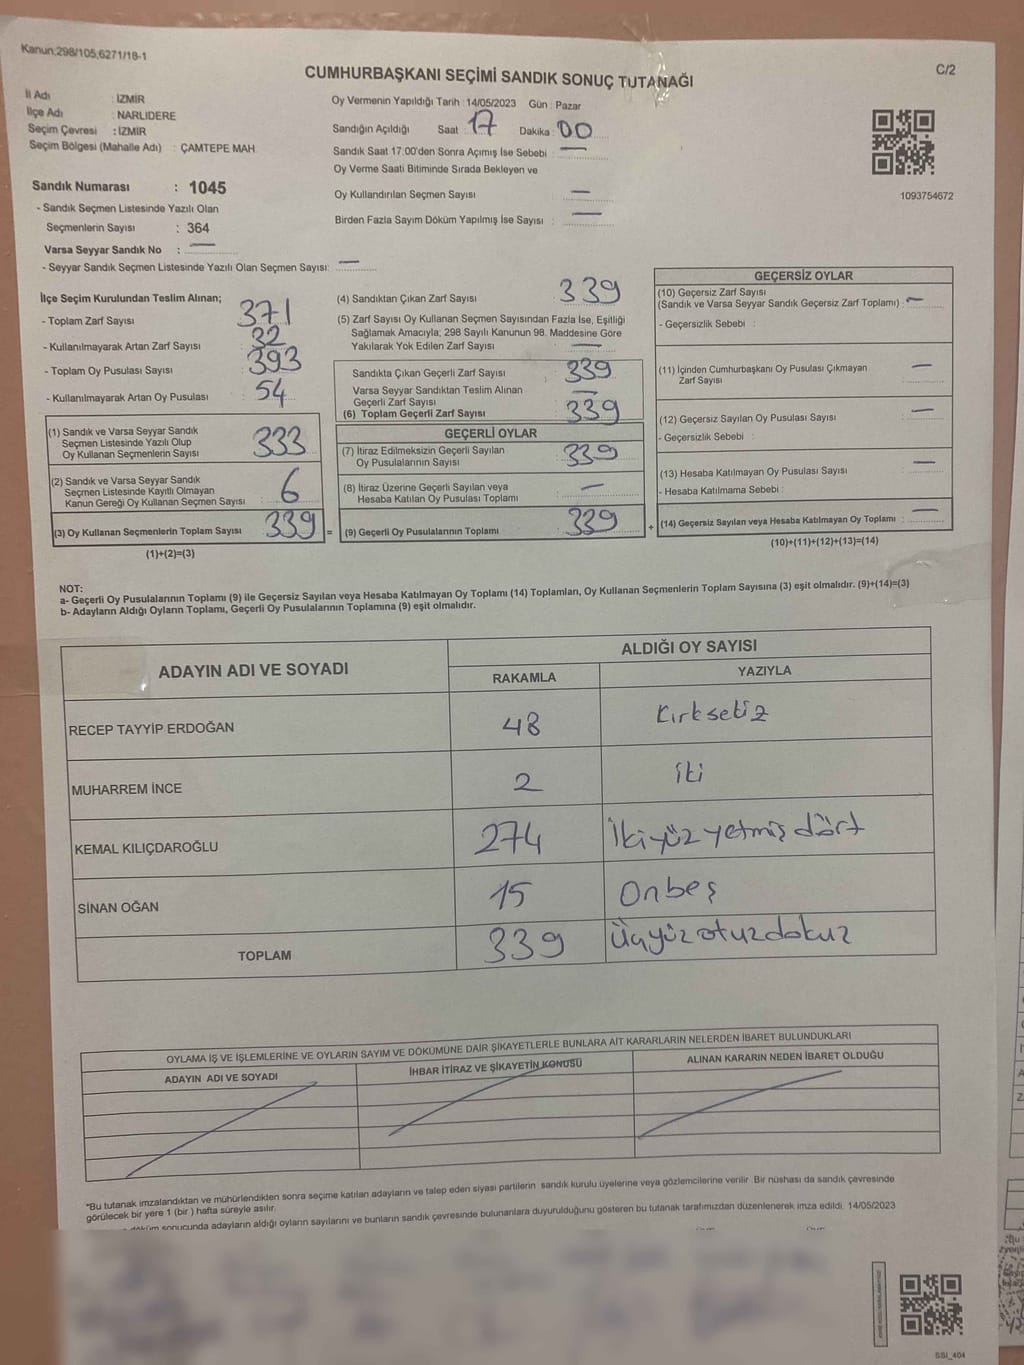 Kanun;298/105;6271/18-1
C/2
CUMHURBAŞKANI SEÇİMİ SANDIK SONUÇ TUTANAĞI
İl Adı : İZMİR
İlçe Adı : NARLIDERE
Seçim Çevresi : İZMİR
Seçim Bölgesi (Mahalle Adı) : ÇAMTEPE MAH
Sandık Numarası : 1045
- Sandık Seçmen Listesinde Yazılı Olan
Seçmenlerin Sayısı : 364
Varsa Seyyar Sandık No : —
- Seyyar Sandık Seçmen Listesinde Yazılı Olan Seçmen Sayısı: —
Oy Vermenin Yapıldığı Tarih : 14/05/2023 Gün : Pazar
Sandığın Açıldığı Saat : 17 Dakika : 00
Sandık Saat 17.00'den Sonra Açımış İse Sebebi : —
Oy Verme Saati Bitiminde Sırada Bekleyen ve
Oy Kullandırılan Seçmen Sayısı : —
Birden Fazla Sayım Döküm Yapılmış İse Sayısı : —
1093754672
İlçe Seçim Kurulundan Teslim Alınan;
- Toplam Zarf Sayısı : 371
- Kullanılmayarak Artan Zarf Sayısı : 32
- Toplam Oy Pusulası Sayısı : 393
- Kullanılmayarak Artan Oy Pusulası : 54
(1) Sandık ve Varsa Seyyar Sandık
Seçmen Listesinde Yazılı Olup
Oy Kullanan Seçmenlerin Sayısı : 333
(2) Sandık ve Varsa Seyyar Sandık
Seçmen Listesinde Kayıtlı Olmayan
Kanun Gereği Oy Kullanan Seçmen Sayısı : 6
(3) Oy Kullanan Seçmenlerin Toplam Sayısı : 339 =
(1)+(2)=(3)
(4) Sandıktan Çıkan Zarf Sayısı : 339
(5) Zarf Sayısı Oy Kullanan Seçmen Sayısından Fazla İse, Eşitliği
Sağlamak Amacıyla; 298 Sayılı Kanunun 98. Maddesine Göre
Yakılarak Yok Edilen Zarf Sayısı : —
Sandıkta Çıkan Geçerli Zarf Sayısı : 339
Varsa Seyyar Sandıktan Teslim Alınan
Geçerli Zarf Sayısı : —
(6) Toplam Geçerli Zarf Sayısı : 339
GEÇERLİ OYLAR
(7) İtiraz Edilmeksizin Geçerli Sayılan
Oy Pusulalarının Sayısı : 339
(8) İtiraz Üzerine Geçerli Sayılan veya
Hesaba Katılan Oy Pusulası Toplamı : —
(9) Geçerli Oy Pusulalarının Toplamı : 339 +
GEÇERSİZ OYLAR
(10) Geçersiz Zarf Sayısı
(Sandık ve Varsa Seyyar Sandık Geçersiz Zarf Toplamı) : —
- Geçersizlik Sebebi :
(11) İçinden Cumhurbaşkanı Oy Pusulası Çıkmayan
Zarf Sayısı : —
(12) Geçersiz Sayılan Oy Pusulası Sayısı : —
- Geçersizlik Sebebi :
(13) Hesaba Katılmayan Oy Pusulası Sayısı : —
- Hesaba Katılmama Sebebi :
(14) Geçersiz Sayılan veya Hesaba Katılmayan Oy Toplamı : —
(10)+(11)+(12)+(13)=(14)
NOT:
a- Geçerli Oy Pusulalarının Toplamı (9) ile Geçersiz Sayılan veya Hesaba Katılmayan Oy Toplamı (14) Toplamları, Oy Kullanan Seçmenlerin Toplam Sayısına (3) eşit olmalıdır. (9)+(14)=(3)
b- Adayların Aldığı Oyların Toplamı, Geçerli Oy Pusulalarının Toplamına (9) eşit olmalıdır.
ADAYIN ADI VE SOYADI
ALDIĞI OY SAYISI
RAKAMLA YAZIYLA
RECEP TAYYİP ERDOĞAN 48 Kırksekiz
MUHARREM İNCE 2 iki
KEMAL KILIÇDAROĞLU 274 İkiyüz yetmiş dört
SİNAN OĞAN 15 Onbeş
TOPLAM 339 Üçyüz otuzdokuz
OYLAMA İŞ VE İŞLEMLERİNE VE OYLARIN SAYIM VE DÖKÜMÜNE DAİR ŞİKAYETLERLE BUNLARA AİT KARARLARIN NELERDEN İBARET BULUNDUKLARI
ADAYIN ADI VE SOYADI İHBAR İTİRAZ VE ŞİKAYETİN KONUSU ALINAN KARARIN NEDEN İBARET OLDUĞU
*Bu tutanak imzalandıktan ve mühürlendikten sonra seçime katılan adayların ve talep eden siyasi partilerin sandık kurulu üyelerine veya gözlemcilerine verilir. Bir nüshası da sandık çevresinde
görülecek bir yere 1 (bir ) hafta süreyle asılır.
döküm sonucunda adayların aldığı oyların sayılarını ve bunların sandık çevresinde bulunanlara duyurulduğunu gösteren bu tutanak tarafımızdan düzenlenerek imza edildi. 14/05/2023
SSI_404